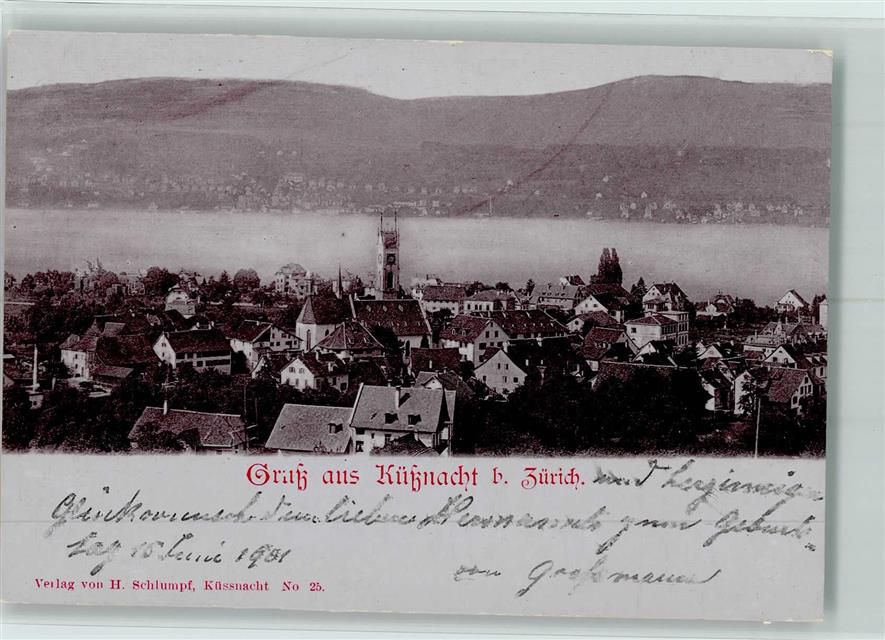 Gruß aus Küßnacht b. Zürich. und herzinnigen
Glückwunsch dem lieben Hermann zum Geburts-
tag 15 Juni 1901
von Großmama
Verlag von H. Schlumpf, Küssnacht No 25.